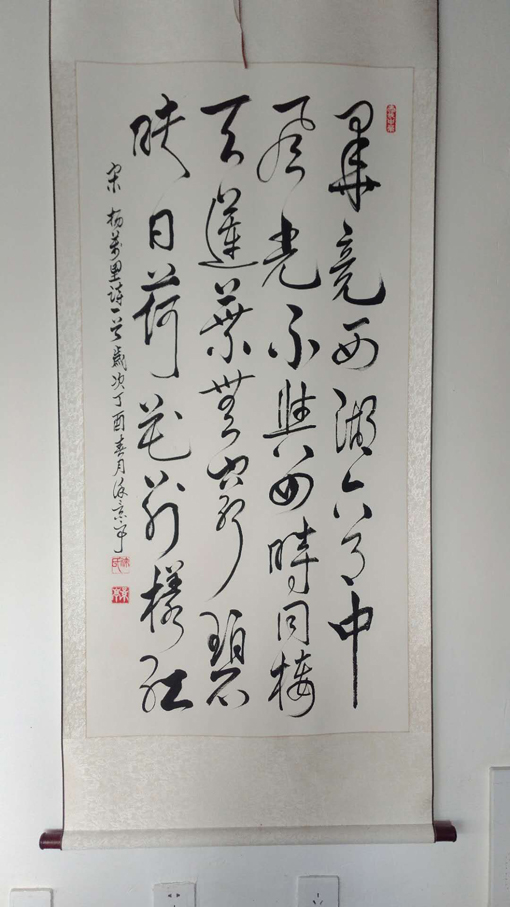 畢竟西湖六月中
風光不與四時同接
天蓮葉無窮碧
映日荷花别樣紅
宋 楊萬里詩一首 歲次丁酉春月